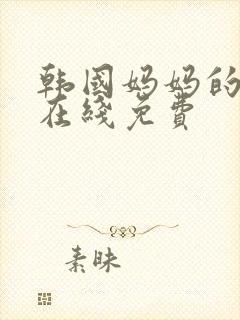 韩国妈妈的
在綫免費
素昧